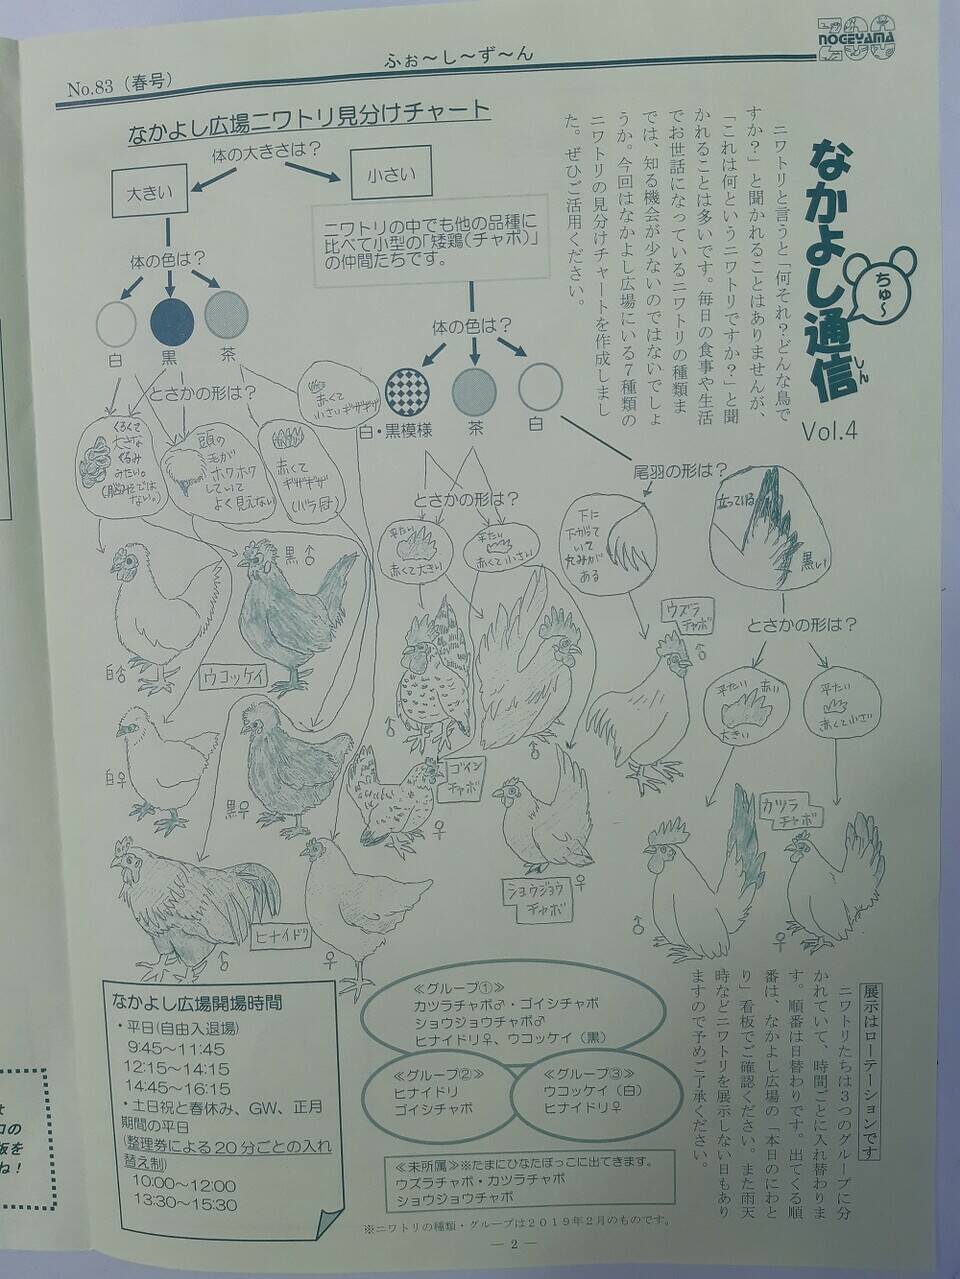 No.83（春号）
ふぉ～し～ず～ん
NOGEYAMA
ZOO
なかよし通信
しん
ちゅ～
Vol.4
ニワトリと言うと「何それ？どんな鳥で
すか？」と聞かれることはありませんが、
「これは何というニワトリですか？」と聞
かれることは多いです。毎日の食事や生活
でお世話になっているニワトリの種類ま
では、知る機会が少ないのではないでしょ
うか。今回はなかよし広場にいる７種類の
ニワトリの見分けチャートを作成しまし
た。ぜひご活用ください。
なかよし広場ニワトリ見分けチャート
体の大きさは？
大きい
小さい
ニワトリの中でも他の品種に
比べて小型の「矮鶏（チャボ）」
の仲間たちです。
体の色は？
白
黒
茶
体の色は？
白・黒模様
茶
白
とさかの形は？
くるくて
大きな
くるみ
みたい。
(脳みそでは
ない。)
頭の
毛が
ホワホワ
していて
よく見えない
赤くて
ギザギザ
(バラ冠)
赤くて
小さいギザギザ
とさかの形は？
平たい
赤くて大きい
平たい
赤くて小さい
尾羽の形は？
下に
下がって
いて
丸みが
ある
立っている
黒い
とさかの形は？
平たい 赤い
大きい
平たい
赤くて小さい
白♂
黒♂
ウコッケイ
白♀
黒♀
ヒナイドリ
♂
♀
♂
ゴイシ
チャボ
♀
♂
ショウジョウ
チャボ
♀
ウズラ
チャボ
♂
カツラ
チャボ
♂
♀
なかよし広場開場時間
・平日(自由入退場)
9:45～11:45
12:15～14:15
14:45～16:15
・土日祝と春休み、GW、正月
期間の平日
(整理券による20分ごとの入れ
替え制)
10:00～12:00
13:30～15:30
≪グループ①≫
カツラチャボ♂・ゴイシチャボ
ショウジョウチャボ♂
ヒナイドリ♀、ウコッケイ（黒）
≪グループ②≫
ヒナイドリ
ゴイシチャボ
≪グループ③≫
ウコッケイ（白）
ヒナイドリ♀
≪未所属≫※たまにひなたぼっこに出てきます。
ウズラチャボ・カツラチャボ
ショウジョウチャボ
※ニワトリの種類・グループは２０１９年２月のものです。
展示はローテーションです
ニワトリたちは３つのグループに分
かれていて、時間ごとに入れ替わりま
す。順番は日替わりです。出てくる順
番は、なかよし広場の「本日のにわと
り」看板でご確認ください。また雨天
時などニワトリを展示しない日もあり
ますので予めご了承ください。
― 2 ―
コの
板を
ね！